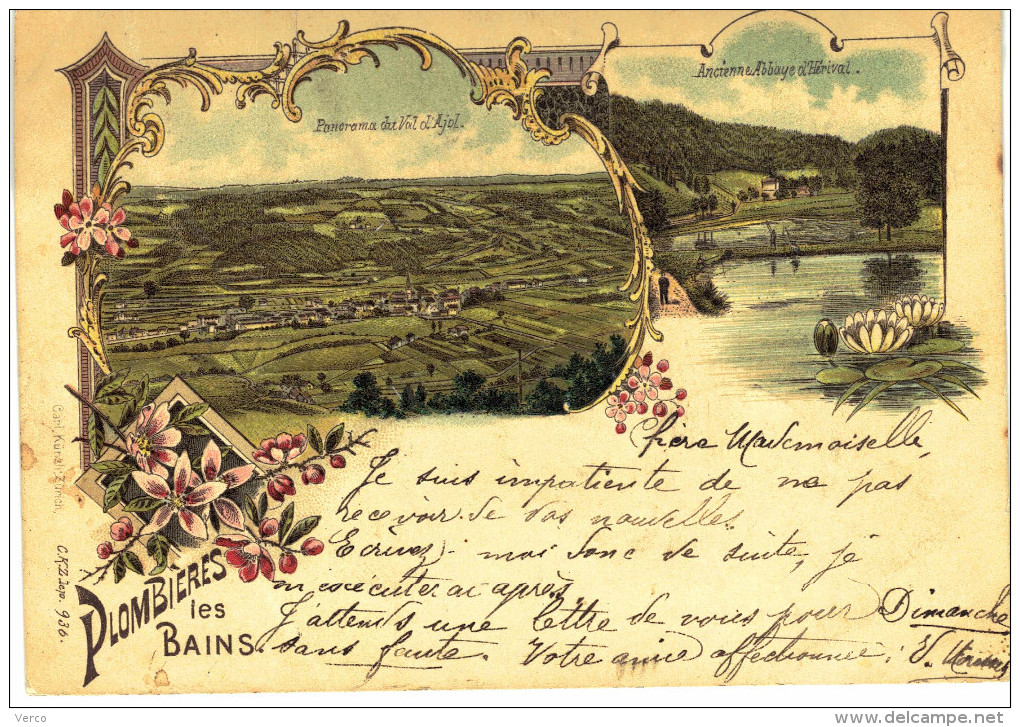 Panorama du Val d'Ajol.
Ancienne Abbaye d'Hérival.
Chère Mademoiselle,
Je suis impatiente de ne pas
recevoir de vos nouvelles.
Ecrivez-moi donc de suite, je
m'exécuterai après.
J'attends une lettre de vous pour Dimanche
sans faute. Votre amie affectionnée: V.
PLOMBIÈRES
les
BAINS.
Carl Künzli, Zürich.
C.K.Z. dep. 936.
Verco
www.delcampe.net